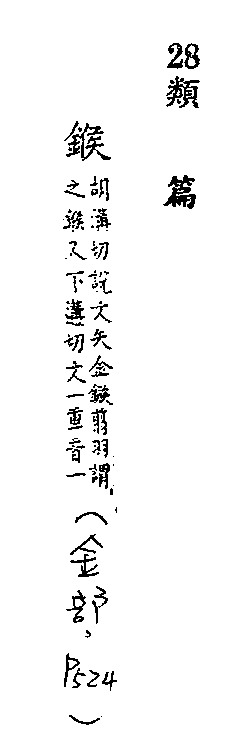 28類篇
鍭胡溝切說文矢金鍭翦羽謂
之鍭又下遘切文一重音一
(金部、P524)